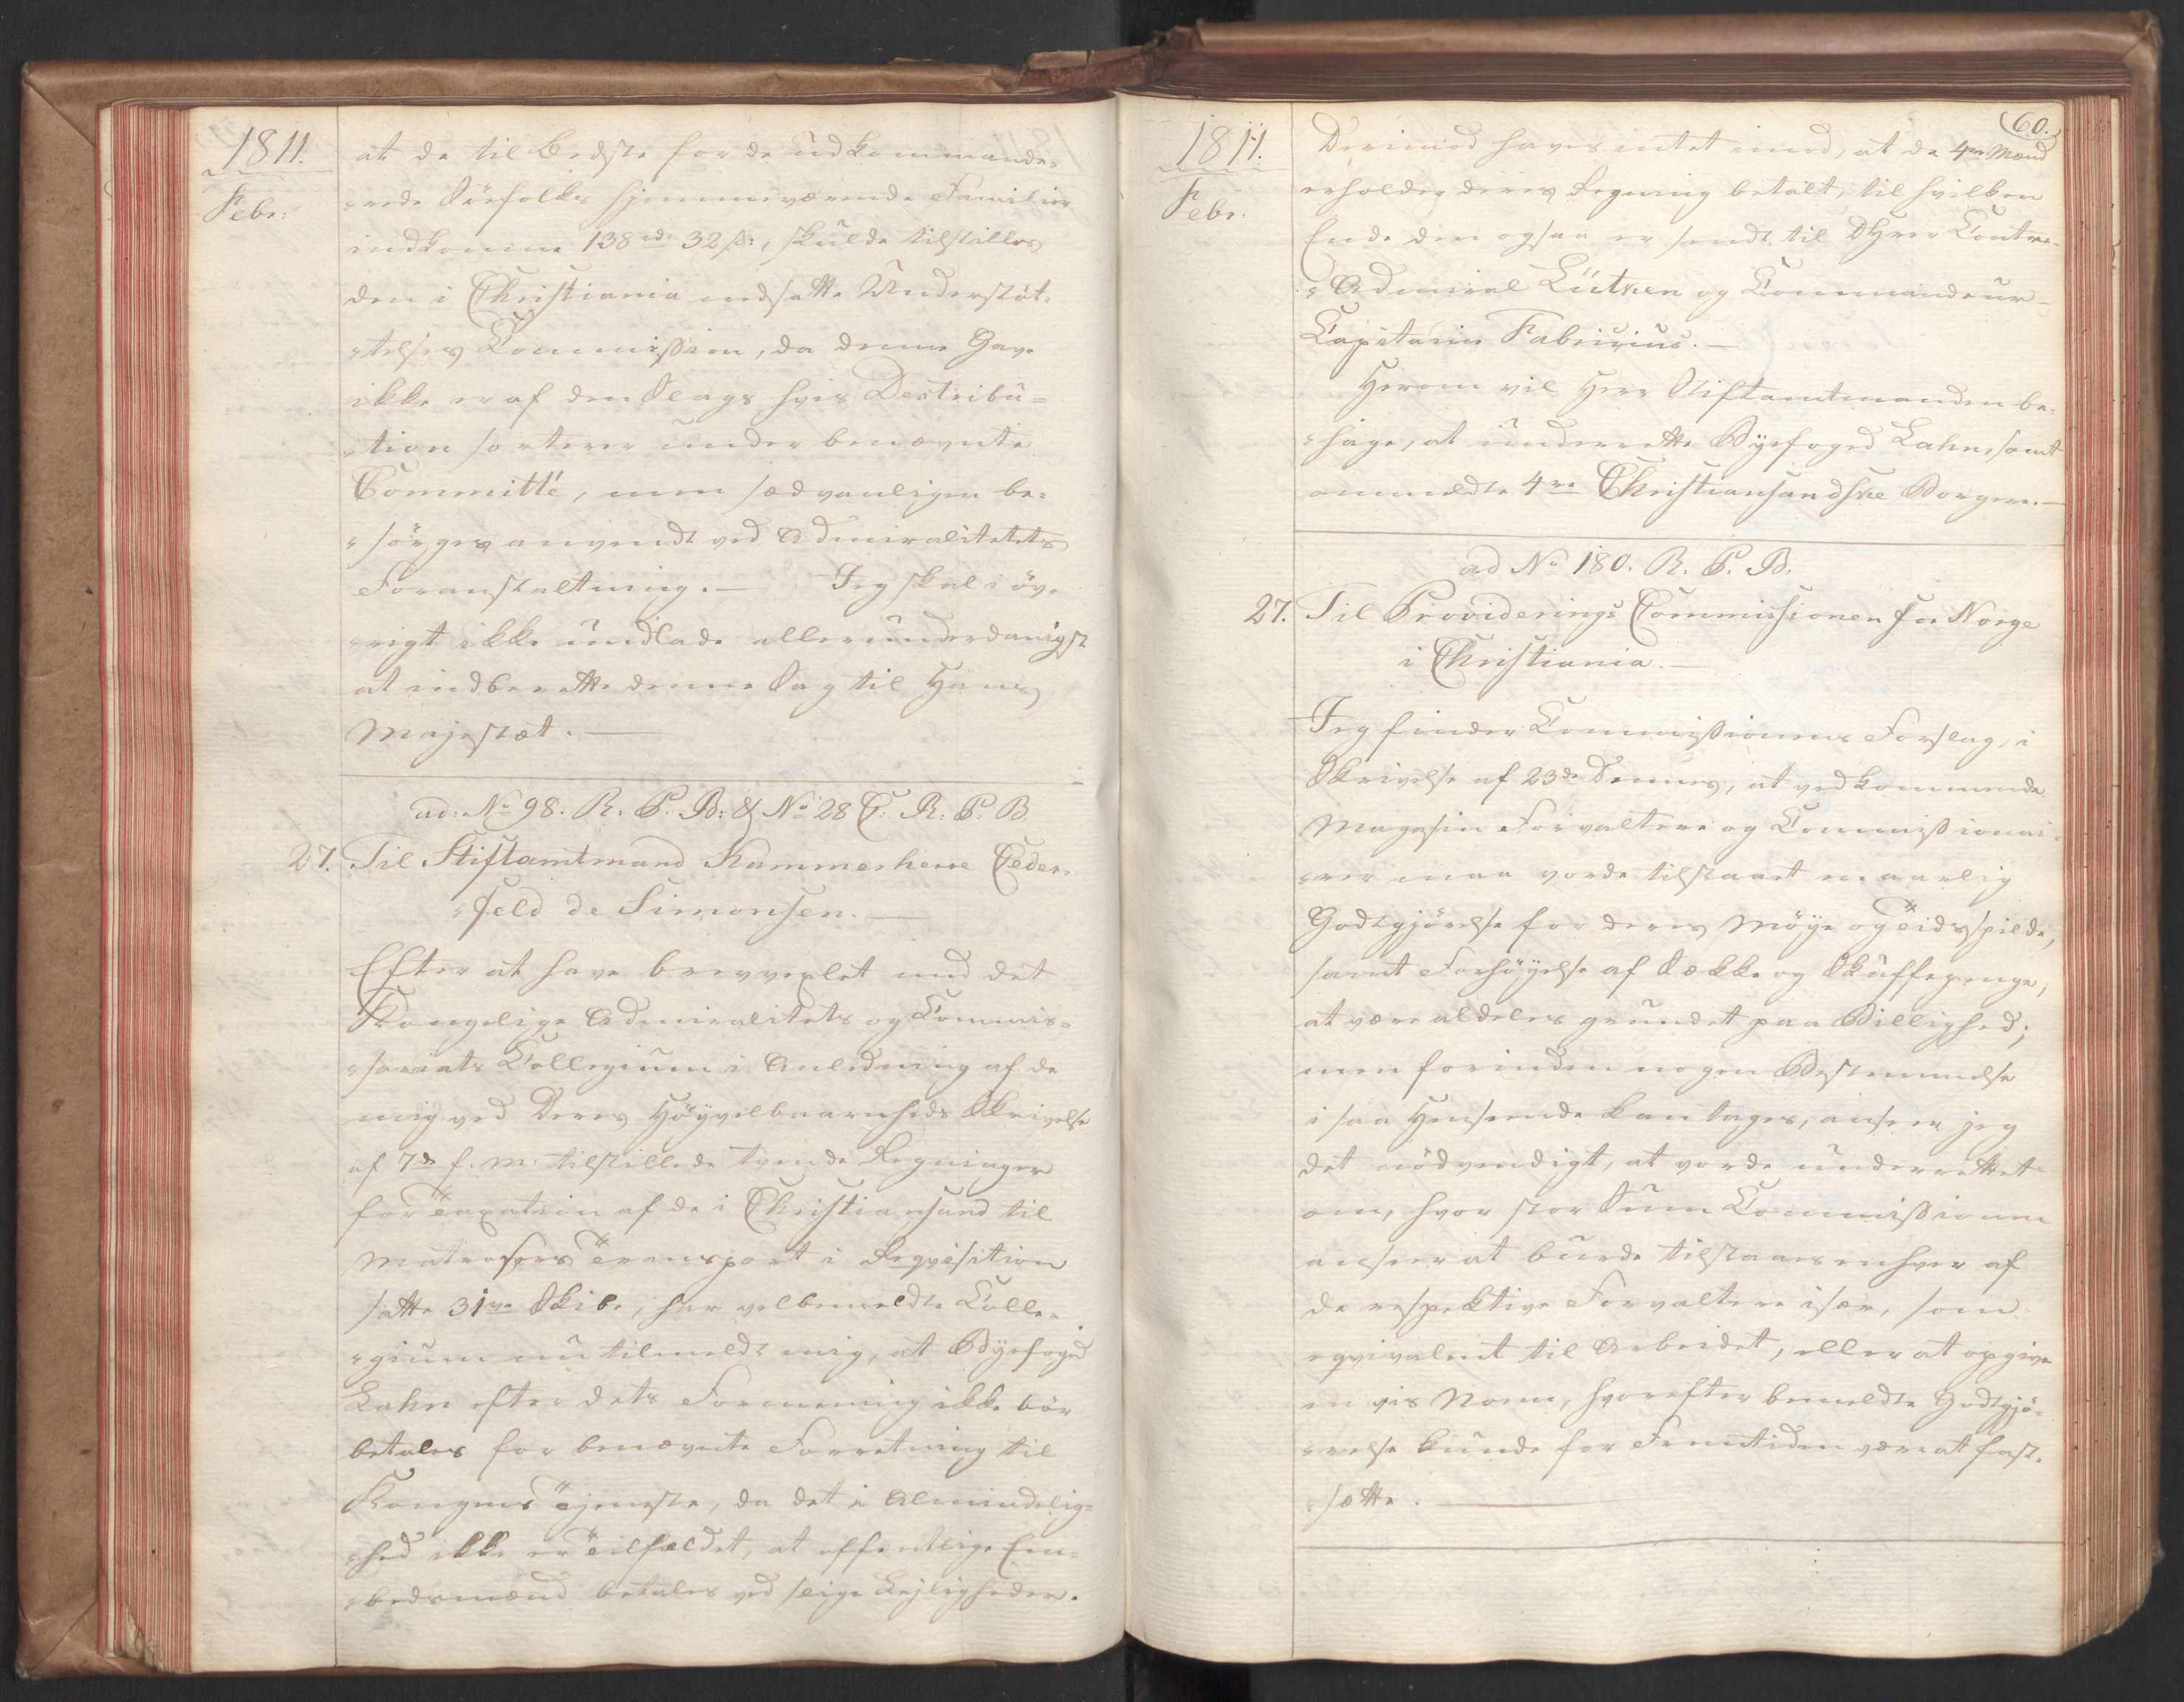 1811.
Febr:
at de til Bedste for de udkommande-
-rede Söefolks hjemmeværende Familier
indkomne 138 rd. 32 ß:, skulde tilstilles
den i Christiania nedsatte Understöt-
-telses Commission, da denne Gave
ikke er af den Slags hvis Destribu=
-tion sorterer under benævnte
Committé, men sædvanligen be=
-sörges anvendt ved Admiralitetets
Foranstaltning.— Jeg skal i öv-
-rigt ikke undlade allerunderdanigst
at indberette denne Sag til Hans
Majestæt.—
ad: No 98. R. P. B: & No 28 C. R. P. B.
27. Til Stiftamtmand Kammerherre Ceder-
-feld de Simonsen.—
Efter at have brevvexlet med det
Kongelige Admiralitets og Commis=
-sariats Collegium i Anledning af de
mig ved Deres Höyvelbaarenheds Skrivelse
af 7de f. M. tilstillede tvende Regninger
for Taxation af de i Christiansand til
Matrosers Transport i Reqvisition
satte 31ve Skibe, har velbemeldte Colle-
-gium nu tilmeldt mig, at Byefoged
Lahn efter dets Formening ikke bör
betales for benævnte Forretning til
Kongens Tjeneste, da det i Almindelig=
-hed ikke er Tilfældet, at offentlige Em=
-bedsmænd betales ved slige Lejligheder.
60.
1811.
Febr:
Derimod haves intet imod, at de 4re Mænd
erholder deres Regning betalt, til hvilken
Ende den ogsaa er sendt til DHrr Contre-
-Admiral Lütken og Commandeur-
Capitain Fabricius.—
Herom vil Herr Stiftamtmanden be-
-hage, at underrette Byefoged Lahn, samt
ommeldte 4re Christiansandske Borgere.—
ad No 180. R. P. B.
27. Til Proviederings Commissionen for Norge
i Christiania.—
Jeg finder Commissionens Forslag, i
Skrivelse af 23de Dennes, at vedkommende
Magasin Forvaltere og Commissionai-
-rer maa vorde tilstaaet en aarlig
Godtgjörelse for deres Möye og Tidsspilde,
samt Forhöyelse af Sække og Skuffepenge,
at være aldeles grundet paa Billighed;
men forinden nogen Bestemmelse
i saa Henseende kan tages, anseer jeg
det nödvendigt, at vorde underrettet
om, hvor stor Sum Commissionen
anseer at burde tilstaaes enhver af
de respektive Forvaltere især, som
eqvivalent til Arbeidet, eller at opgive
en vis Norm, hvorefter bemeldte Godtgjö-
-relse kunde for Fremtiden være at fast-
-sætte.—